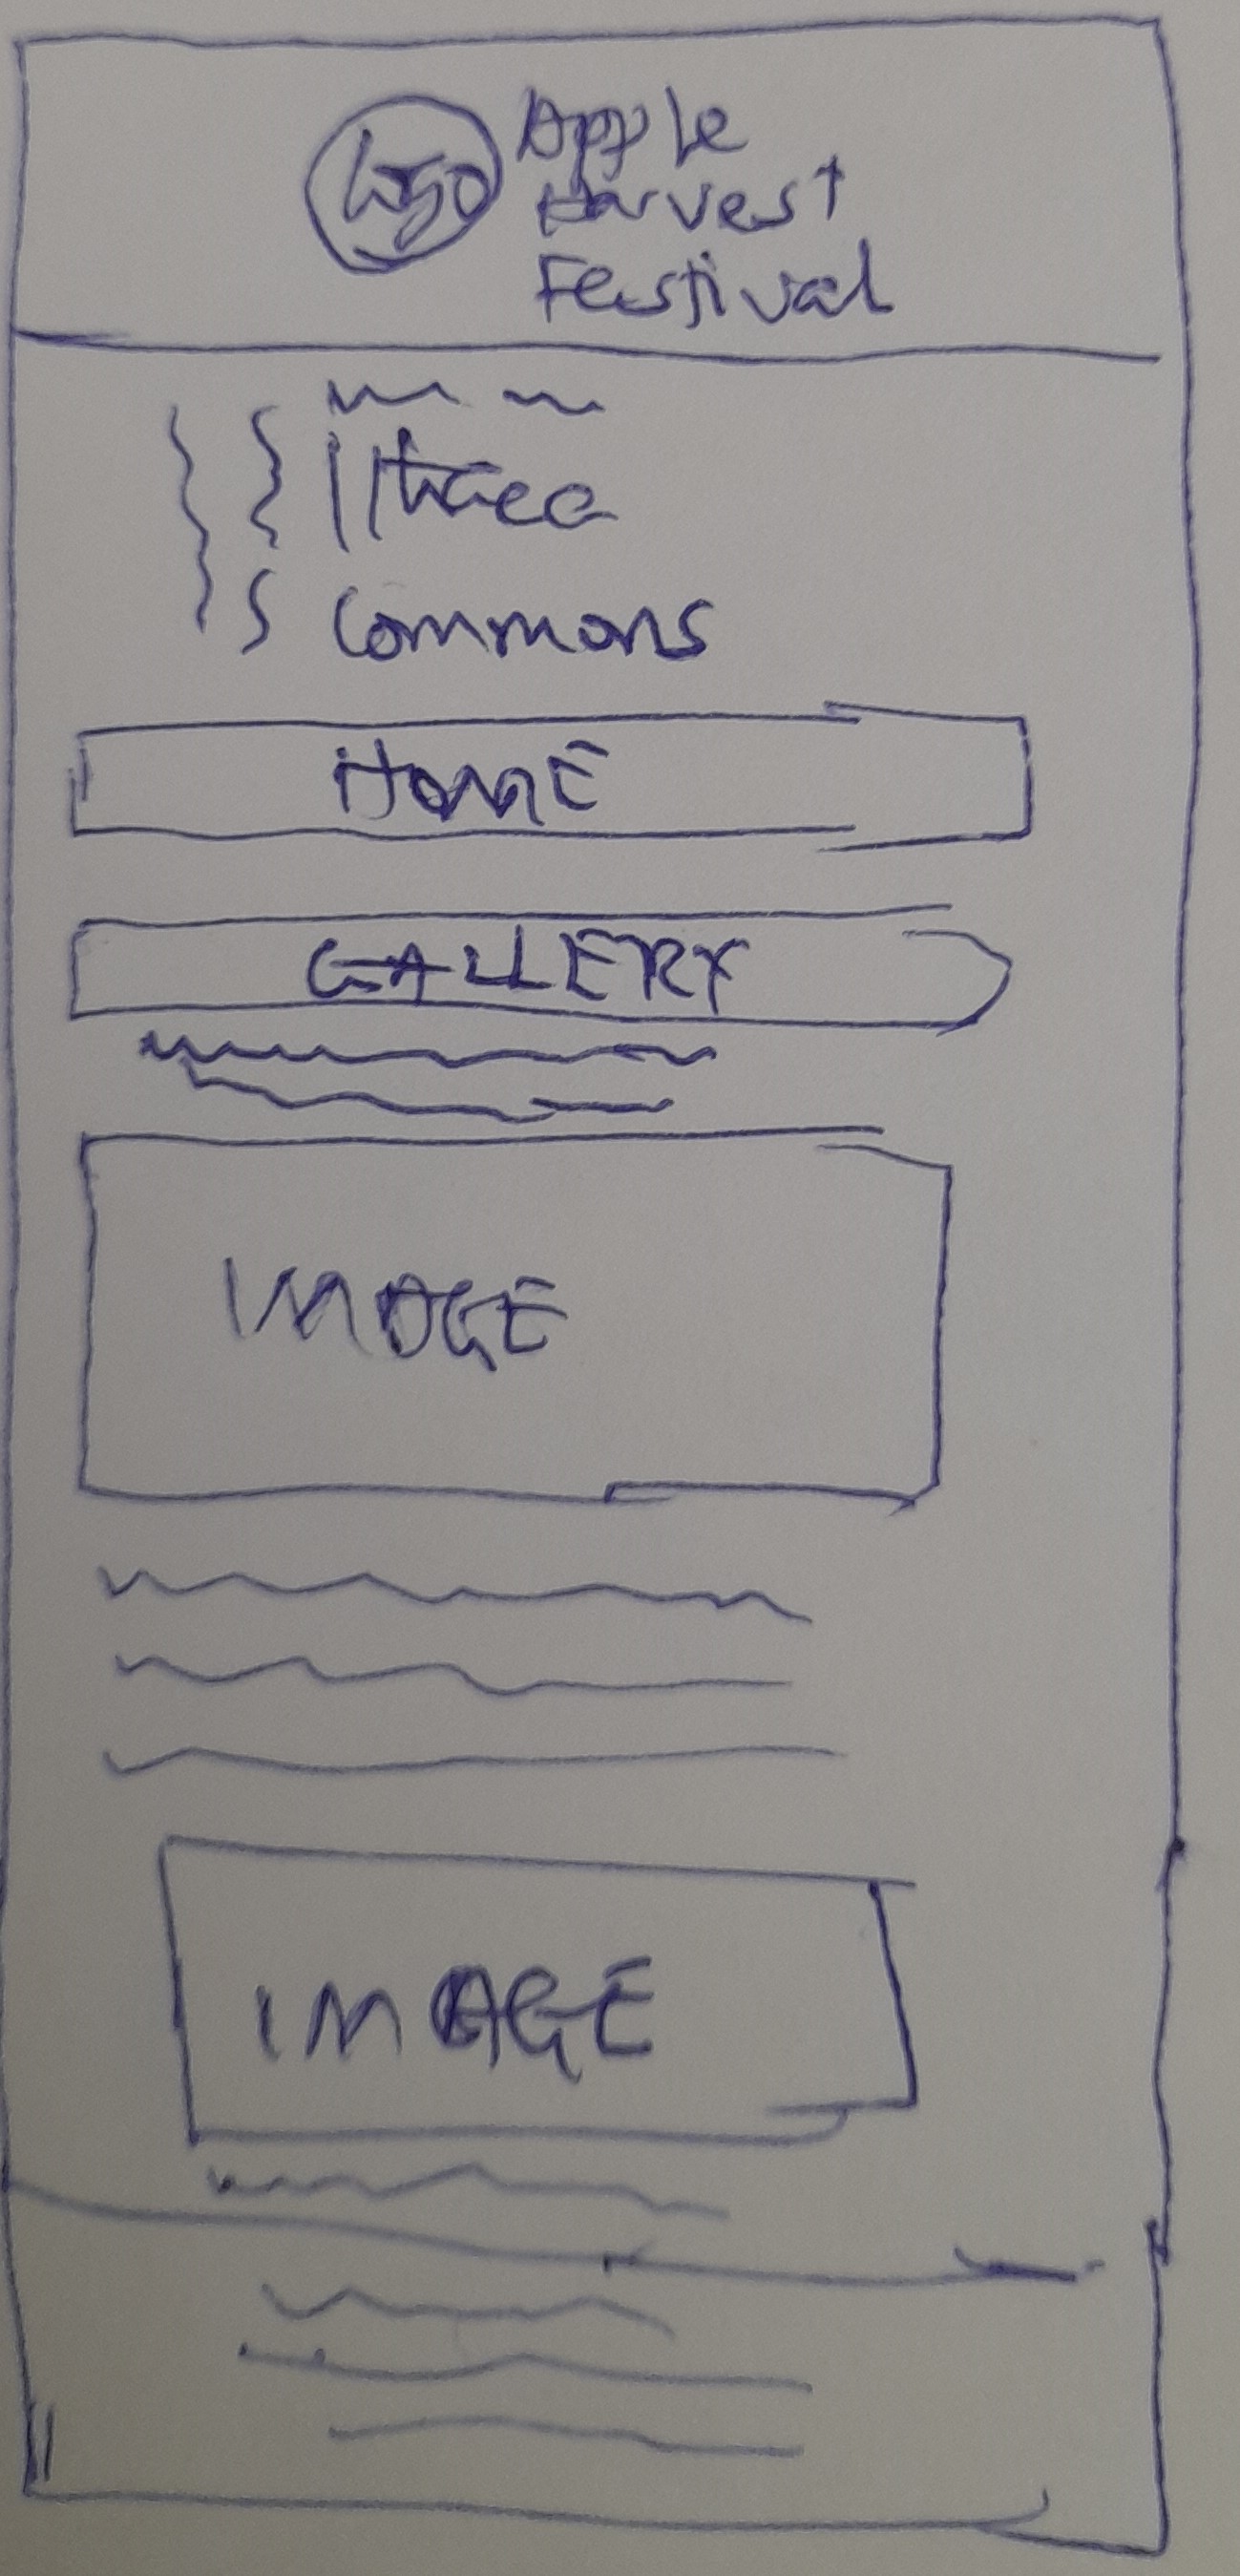 Logo
Apple
Harvest
Festival
Ithaca
Commons
HOME
GALLERY
IMAGE
IMAGE